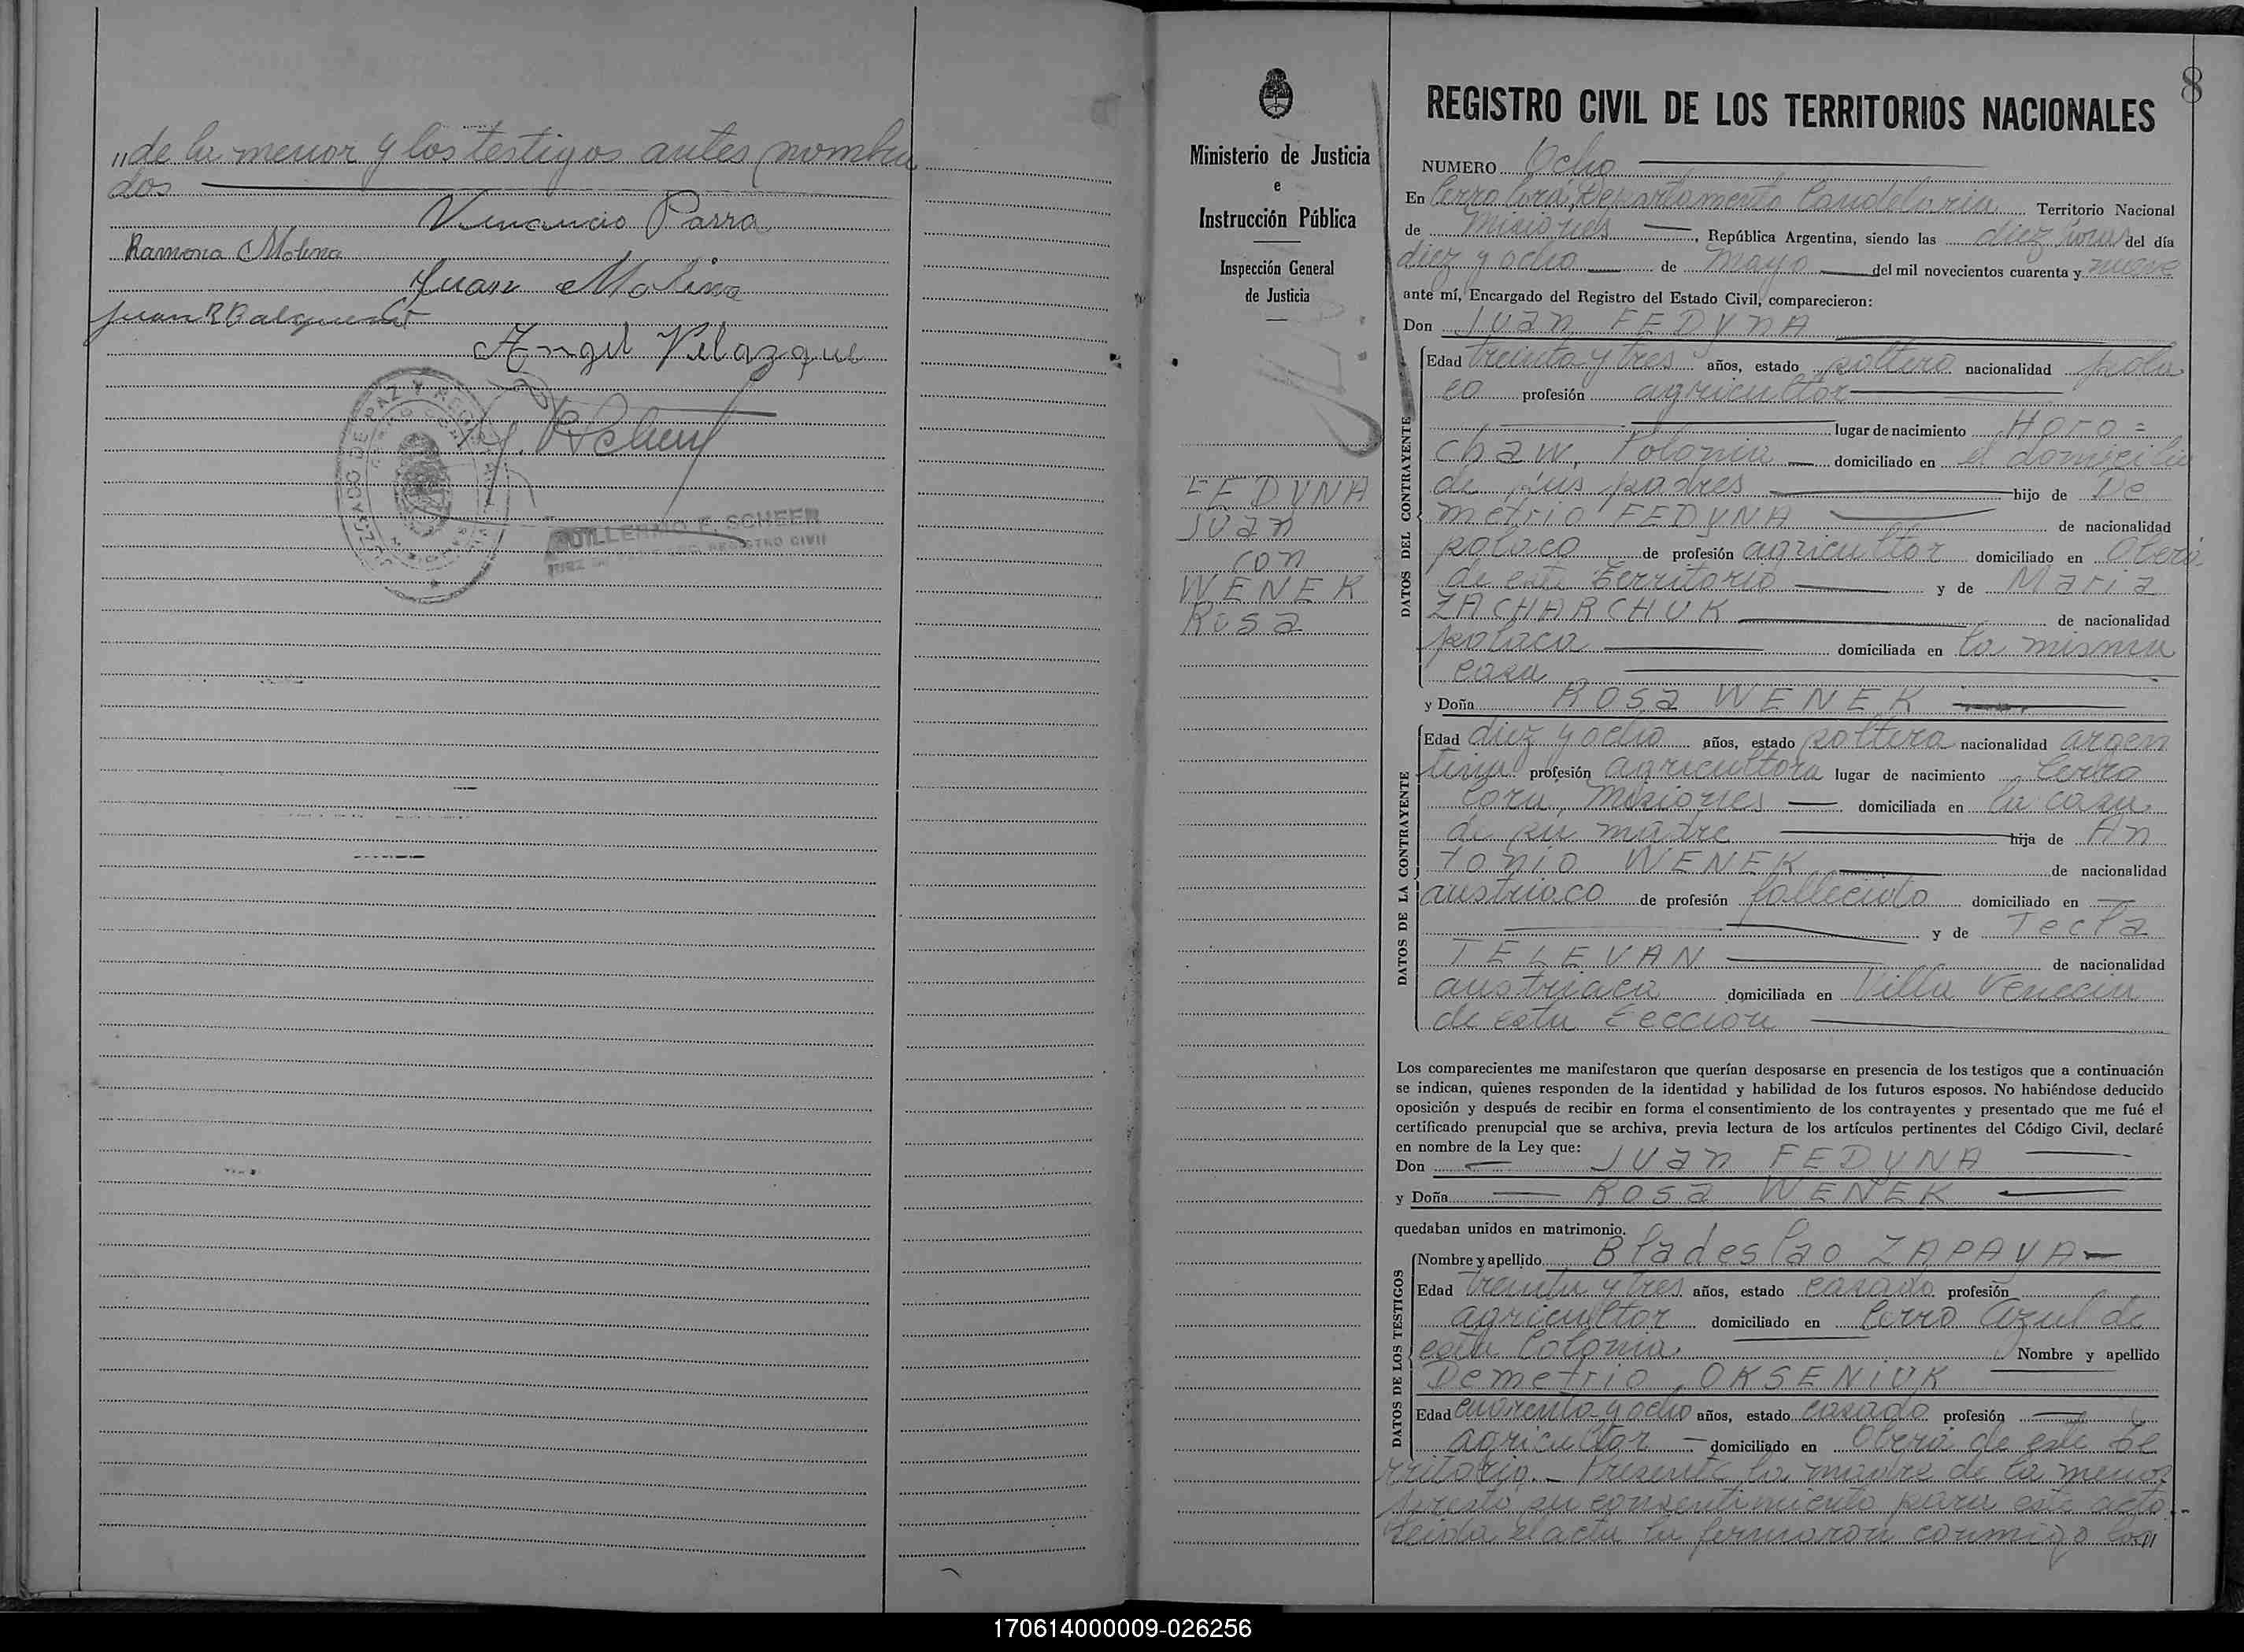 "de la menor y los testigos antes nombra
dos
Venancio Parra
Ramona Molina
Juan Molina
Angel Velazque
JUZGADO DE PAZ Y
GUILLERMO E. SCHEER
JUEZ DE PAZ REGISTRO CIVIL
8
Ministerio de Justicia
e
Instrucción Pública
Inspección General
de Justicia
FEDYNA
Juan
con
WENEK
Rosa
REGISTRO CIVIL DE LOS TERRITORIOS NACIONALES
NUMERO Ocho
En Cerro Corá, Departamento Candelaria Territorio Nacional
de Misiones, República Argentina, siendo las diez horas del día
diez y ocho de mayo del mil novecientos cuarenta y nueve
ante mí, Encargado del Registro del Estado Civil, comparecieron:
Don Juan FEDYNA
DATOS DEL CONTRAYENTE
Edad treinta y tres años, estado soltero nacionalidad pola
co profesión agricultor
lugar de nacimiento Horo=
chaw, Polonia domiciliado en el domicilio
de sus padres hijo de De
metrio FEDYNA de nacionalidad
polaco de profesión agricultor domiciliado en Oberá
de este Territorio y de Maria
ZACHARCHUK de nacionalidad
polaca domiciliada en la misma
casa
y Doña Rosa WENEK
DATOS DE LA CONTRAYENTE
Edad diez y ocho años, estado soltera nacionalidad argen
tina profesión agricultora lugar de nacimiento Cerro
Corá, Misiones domiciliada en la casa
de su madre hija de An
tonio WENEK de nacionalidad
austriaco de profesión fallecido domiciliado en
y de Tecla
TELEVAN de nacionalidad
austriaca domiciliada en Villa Venecia
de esta Sección
Los comparecientes me manifestaron que querían desposarse en presencia de los testigos que a continuación
se indican, quienes responden de la identidad y habilidad de los futuros esposos. No habiéndose deducido
oposición y después de recibir en forma el consentimiento de los contrayentes y presentado que me fué el
certificado prenupcial que se archiva, previa lectura de los artículos pertinentes del Código Civil, declaré
en nombre de la Ley que:
Don Juan FEDYNA
y Doña Rosa WENEK
quedaban unidos en matrimonio.
DATOS DE LOS TESTIGOS
Nombre y apellido Bladeslao ZAPAYA
Edad treinta y tres años, estado casado profesión
agricultor domiciliado en Cerro Azul de
esta Colonia Nombre y apellido
Demetrio OKSENIUK
Edad cuarenta y ocho años, estado casado profesión
agricultor domiciliado en Oberá de este Te
rritorio.- Presente la madre de la menor
presto su consentimiento para este acto.-
Leida el acta la firmaron conmigo los"
170614000009-026256